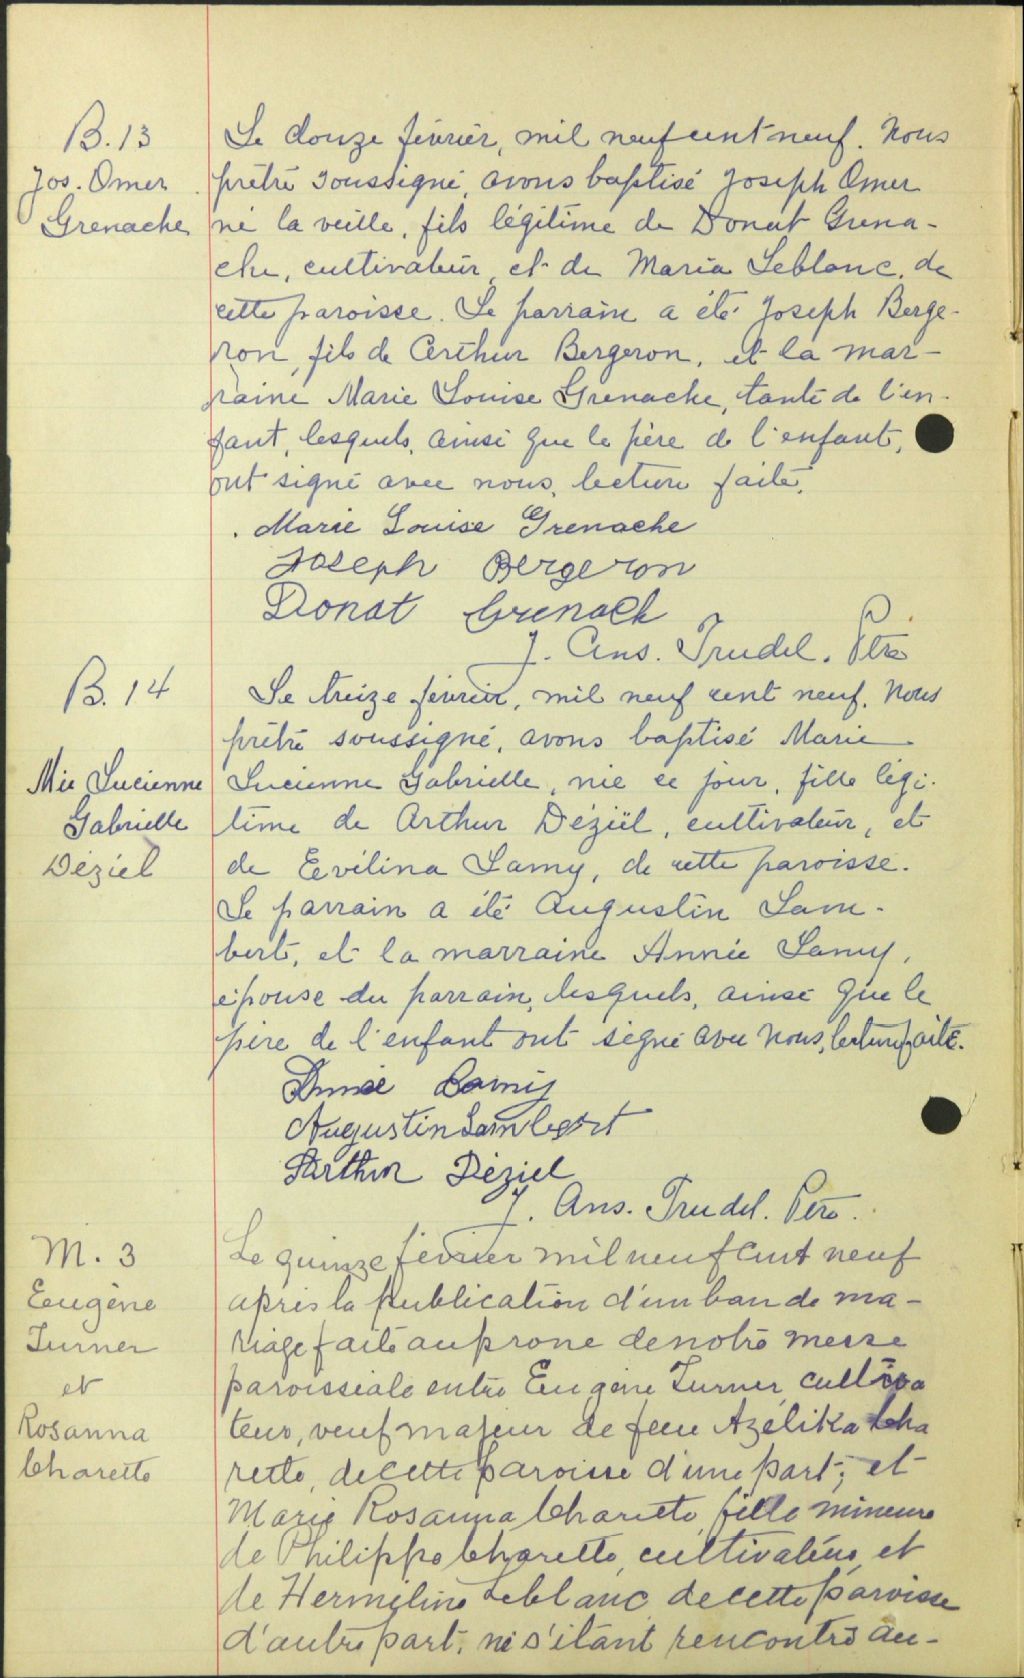 B. 13
Jos. Omer
Grenache
Le douze février, mil neuf cent neuf. Nous
prêtre soussigné, avons baptisé Joseph Omer
né la veille, fils légitime de Donat Grena-
che, cultivateur, et de Maria Leblanc, de
cette paroisse. Le parrain a été Joseph Berge-
ron, fils de Arthur Bergeron, et la mar-
raine Marie Louise Grenache, tante de l'en-
fant, lesquels, ainsi que le père de l'enfant,
ont signé avec nous, lecture faite.
Marie Louise Grenache
Joseph Bergeron
Donat Grenach
J. Ans. Trudel. Ptre
B. 14
Mie Lucienne
Gabrielle
Déziel
Le treize février, mil neuf cent neuf. Nous
prêtre soussigné, avons baptisé Marie
Lucienne Gabrielle, née ce jour, fille légi-
time de Arthur Déziel, cultivateur, et
de Evélina Lamy, de cette paroisse.
Le parrain a été Augustin Lam-
bert, et la marraine Annie Lamy,
épouse du parrain, lesquels, ainsi que le
père de l'enfant ont signé avec nous, lecture faite.
Annie Lamy
Augustin Lambert
Arthur Déziel
J. Ans. Trudel. Ptre.
M. 3
Eugène
Turner
et
Rosanna
Charette
Le quinze février mil neuf cent neuf
après la publication d'un ban de ma-
riage faite au prone de notre messe
paroissiale entre Eugène Turner cultiva
teur, veuf majeur de feue Azélika Cha
rette, de cette paroisse d'une part; et
Marie Rosanna Charette, fille mineure
de Philippe Charette, cultivateur, et
de Herméline Leblanc de cette paroisse
d'autre part. ne s'étant rencontré au-